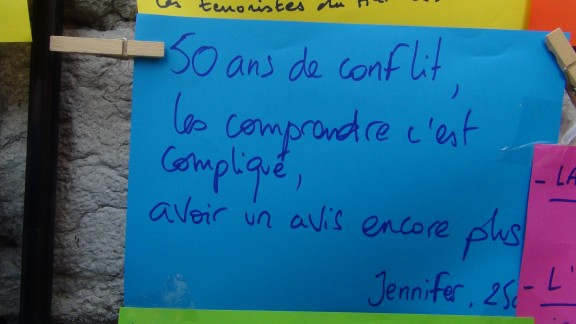 les terroristes du
50 ans de conflit,
les comprendre c'est
compliqué,
avoir un avis encore plus
Jennifer, 25
- LA
- L'